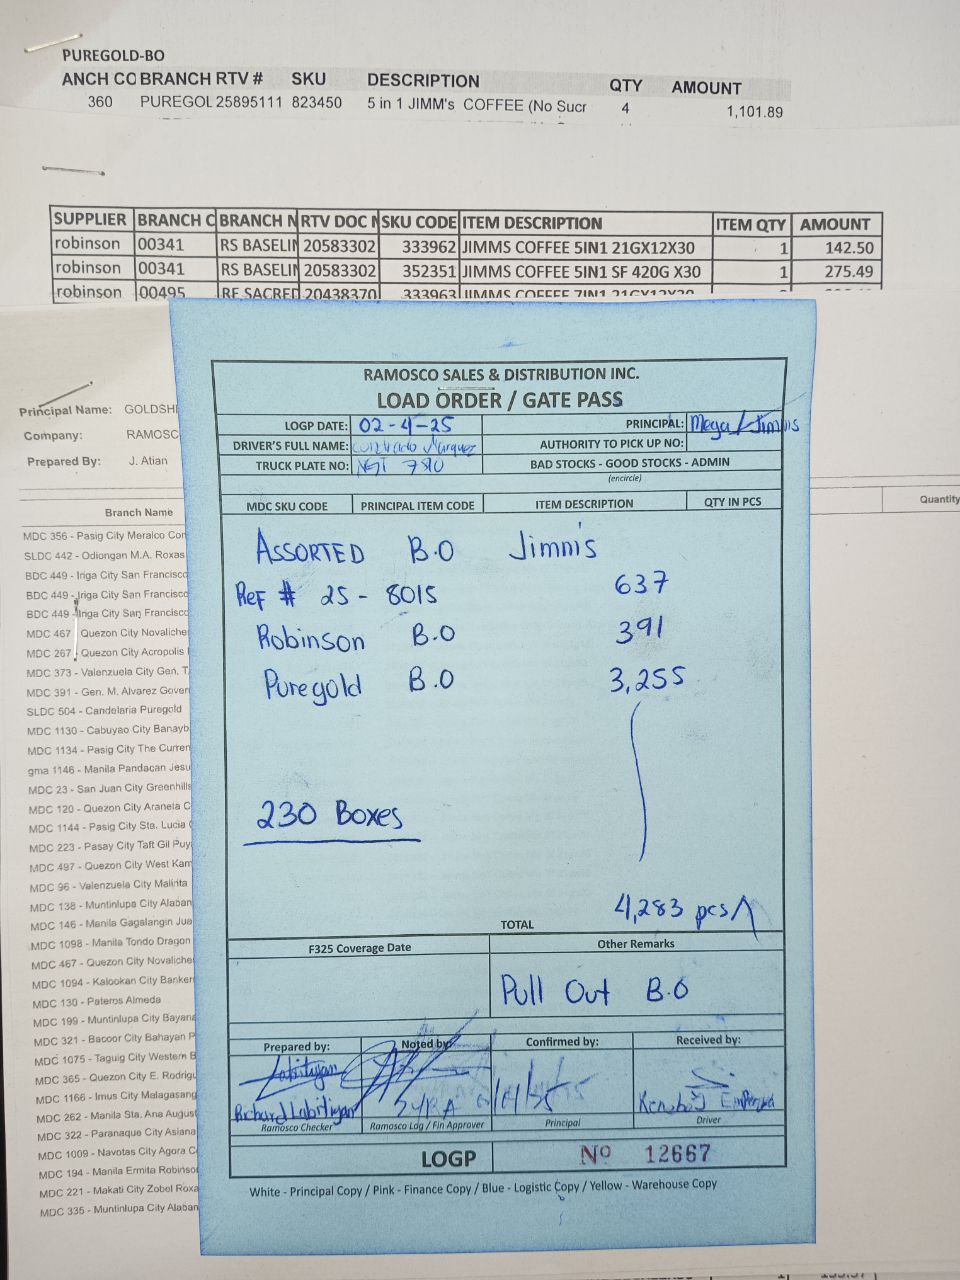 PUREGOLD-BO
ANCH CO BRANCH RTV # SKU DESCRIPTION QTY AMOUNT
360 PUREGOL 25895111 823450 5 in 1 JIMM's COFFEE (No Sucr 4 1,101.89
SUPPLIER BRANCH C BRANCH N RTV DOC N SKU CODE ITEM DESCRIPTION ITEM QTY AMOUNT
robinson 00341 RS BASELIN 20583302 333962 JIMMS COFFEE 5IN1 21GX12X30 1 142.50
robinson 00341 RS BASELIN 20583302 352351 JIMMS COFFEE 5IN1 SF 420G X30 1 275.49
robinson 00495 RF SACRED 20438370 333963 JIMMS COFFEE 7IN1 21GX12X30
Principal Name: GOLDSHI
Company: RAMOSC
Prepared By: J. Atian
Branch Name
Quantity
MDC 356 - Pasig City Meralco Con
SLDC 442 - Odiongan M.A. Roxas
BDC 449 - Iriga City San Francisco
BDC 449 - Iriga City San Francisco
BDC 449 - Iriga City San Francisco
MDC 467 - Quezon City Novaliche
MDC 267 - Quezon City Acropolis
MDC 373 - Valenzuela City Gen. T.
MDC 391 - Gen. M. Alvarez Gover
SLDC 504 - Candelaria Puregold
MDC 1130 - Cabuyao City Banayb
MDC 1134 - Pasig City The Curren
gma 1146 - Manila Pandacan Jesu
MDC 23 - San Juan City Greenhills
MDC 120 - Quezon City Araneta C
MDC 1144 - Pasig City Sta. Lucia
MDC 223 - Pasay City Taft Gil Puy
MDC 497 - Quezon City West Kam
MDC 96 - Valenzuela City Malinta
MDC 138 - Muntinlupa City Alaban
MDC 146 - Manila Gagalangin Jua
MDC 1098 - Manila Tondo Dragon
MDC 467 - Quezon City Novaliche
MDC 1094 - Kalookan City Banker
MDC 130 - Pateros Almeda
MDC 199 - Muntinlupa City Bayana
MDC 321 - Bacoor City Bahayan P
MDC 1075 - Taguig City Western B
MDC 365 - Quezon City E. Rodrigu
MDC 1166 - Imus City Malagasang
MDC 262 - Manila Sta. Ana Augus
MDC 322 - Paranaque City Asiana
MDC 1009 - Navotas City Agora C
MDC 194 - Manila Ermita Robinso
MDC 221 - Makati City Zobel Roxa
MDC 335 - Muntinlupa City Alaban
RAMOSCO SALES & DISTRIBUTION INC.
LOAD ORDER / GATE PASS
LOGP DATE: 02-4-25 PRINCIPAL: Mega/Jimms
DRIVER'S FULL NAME: Marquez AUTHORITY TO PICK UP NO:
TRUCK PLATE NO: BAD STOCKS - GOOD STOCKS - ADMIN
(encircle)
MDC SKU CODE PRINCIPAL ITEM CODE ITEM DESCRIPTION QTY IN PCS
ASSORTED B.O Jimms
Ref # 25 - 8015 637
Robinson B.O 391
Puregold B.O 3,255
230 Boxes
4,283 pcs
TOTAL
F325 Coverage Date Other Remarks
Pull Out B.O
Prepared by: Noted by: Confirmed by: Received by:
Richard Labitigan
Ramosco Checker Ramosco Log / Fin Approver Principal Driver
LOGP Nº 12667
White - Principal Copy / Pink - Finance Copy / Blue - Logistic Copy / Yellow - Warehouse Copy